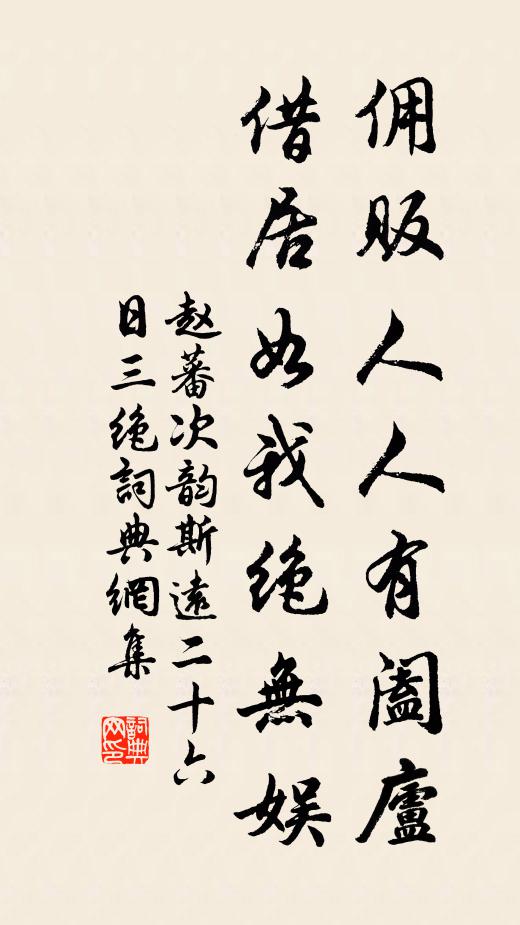 佣販人人有闔廬
借居如我绝無娱
赵蕃次韵斯遠二十六
日三绝詞典網集
詞典網印